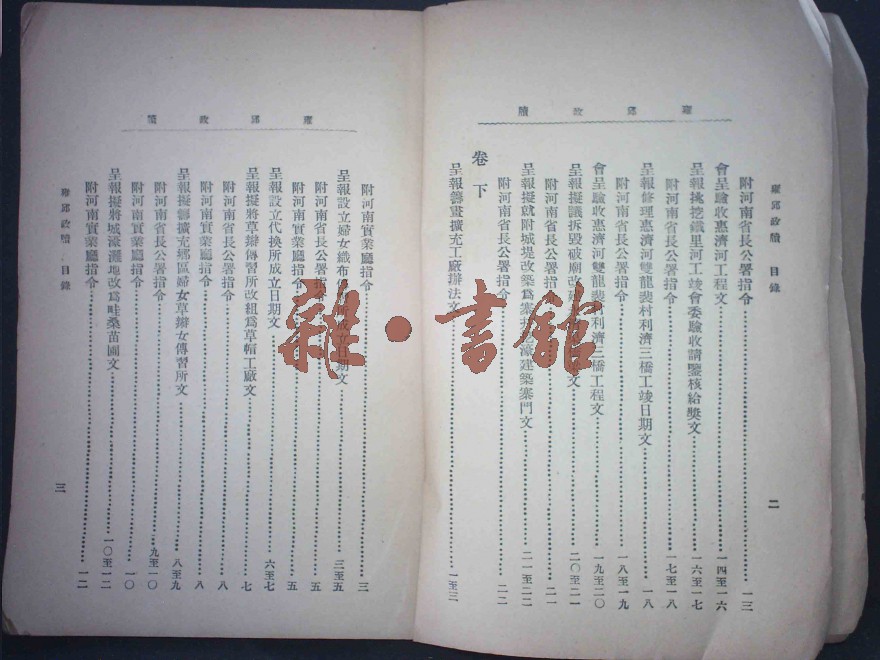 雍邱政牘
雍邱政牘　目錄
附河南省長公署指令……一三
會呈驗收惠濟河工程文……一四至一六
呈報挑挖鐵里河工竣會委驗收請鑒核給獎文……一六至一七
附河南省長公署指令……一七至一八
呈報修理惠濟河雙龍裴村利濟三橋工竣日期文……一八
附河南省長公署指令……一八至一九
會呈驗收惠濟河雙龍裴村利濟三橋工程文……一九至二〇
呈報擬議拆毀破廟改 文……二〇至二一
附河南省長公署指令……二一
呈報擬就附城堤改築爲寨 濠建築寨門文……二一至二二
附河南省長公署指令……二二
卷下
呈報籌畫擴充工廠辦法文……一至三
二
雍邱政牘
附河南實業廳指令……三
呈報設立婦女織布 成立日期文……三至五
附河南省長公署指令……五
附河南實業廳指令……五
呈報設立代換所成立日期文……六至七
呈報擬將草辮傳習所改組爲草帽工廠文……七
附河南省長公署指令……八
附河南實業廳指令……八
呈報擬籌擴充鄉區婦女草辮女傳習所文……八至九
附河南省長公署指令……九至一〇
附河南實業廳指令……一〇
呈報擬將城濠灘地改爲畦桑苗圃文……一〇至一二
附河南省長公署指令……一二
雍邱政牘　目錄
三
雜·書館